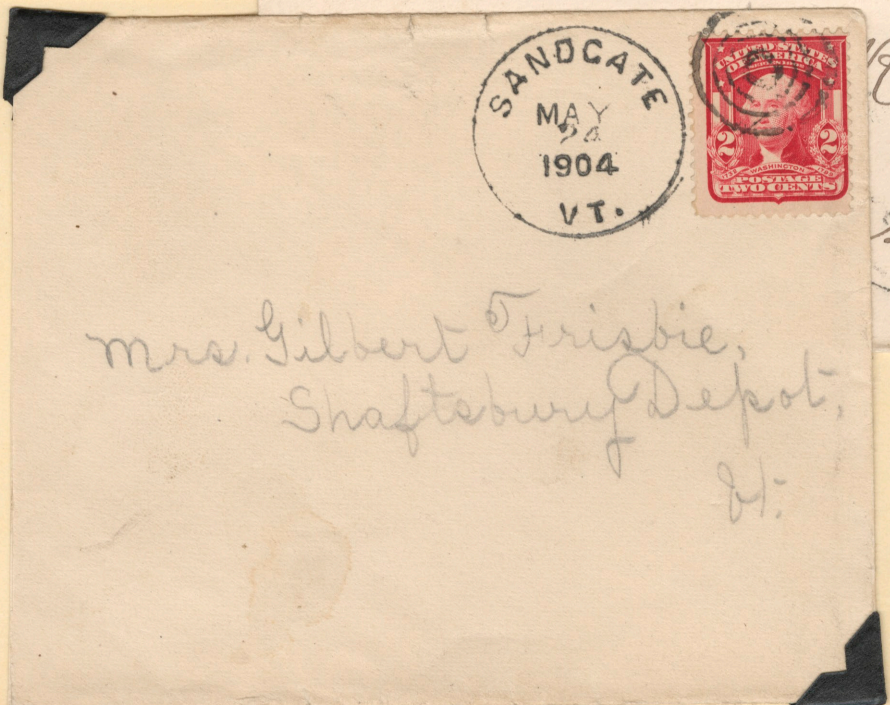 SANDGATE
MAY
24
1904
VT.
UNITED STATES
OF AMERICA
SERIES 1902
2 2
1732 WASHINGTON 1799
POSTAGE
TWO CENTS
Mrs. Gilbert Frisbie,
Shaftsbury Depot,
Vt.